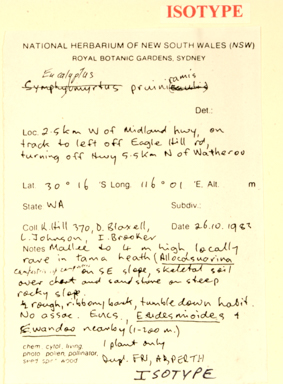 ISOTYPE
NATIONAL HERBARIUM OF NEW SOUTH WALES (NSW)
ROYAL BOTANIC GARDENS, SYDNEY
Eucalyptus ramis
Symphyomyrtus pruini
Det.:
Loc. 2.5km W of Midland hwy, on
track to left off Eagle Hill rd,
turning off Hwy 5.5km N of Watheroo
Lat. 30° 16 'S Long. 116° 01 'E, Alt. m
State WA Subdiv.:
Coll. K. Hill 370, D. Blaxell, Date 26.10.1983
L. Johnson, I. Brooker
Notes Mallee to 4 m high, locally
rare in tama heath (Allocasuarina
campestris) on SE slope, skeletal soil
over chert and sandstone on steep
rocky slope.
½ rough, ribbony bark, tumbledown habit.
No assoc. Eucs, Eudesmioides &
Ewandoo nearby (1-200 m.)
chem. cytol, living, 1 plant only
photo, pollen, pollinator,
seed, spirit, wood Dupl. FRI, AD, PERTH
ISOTYPE